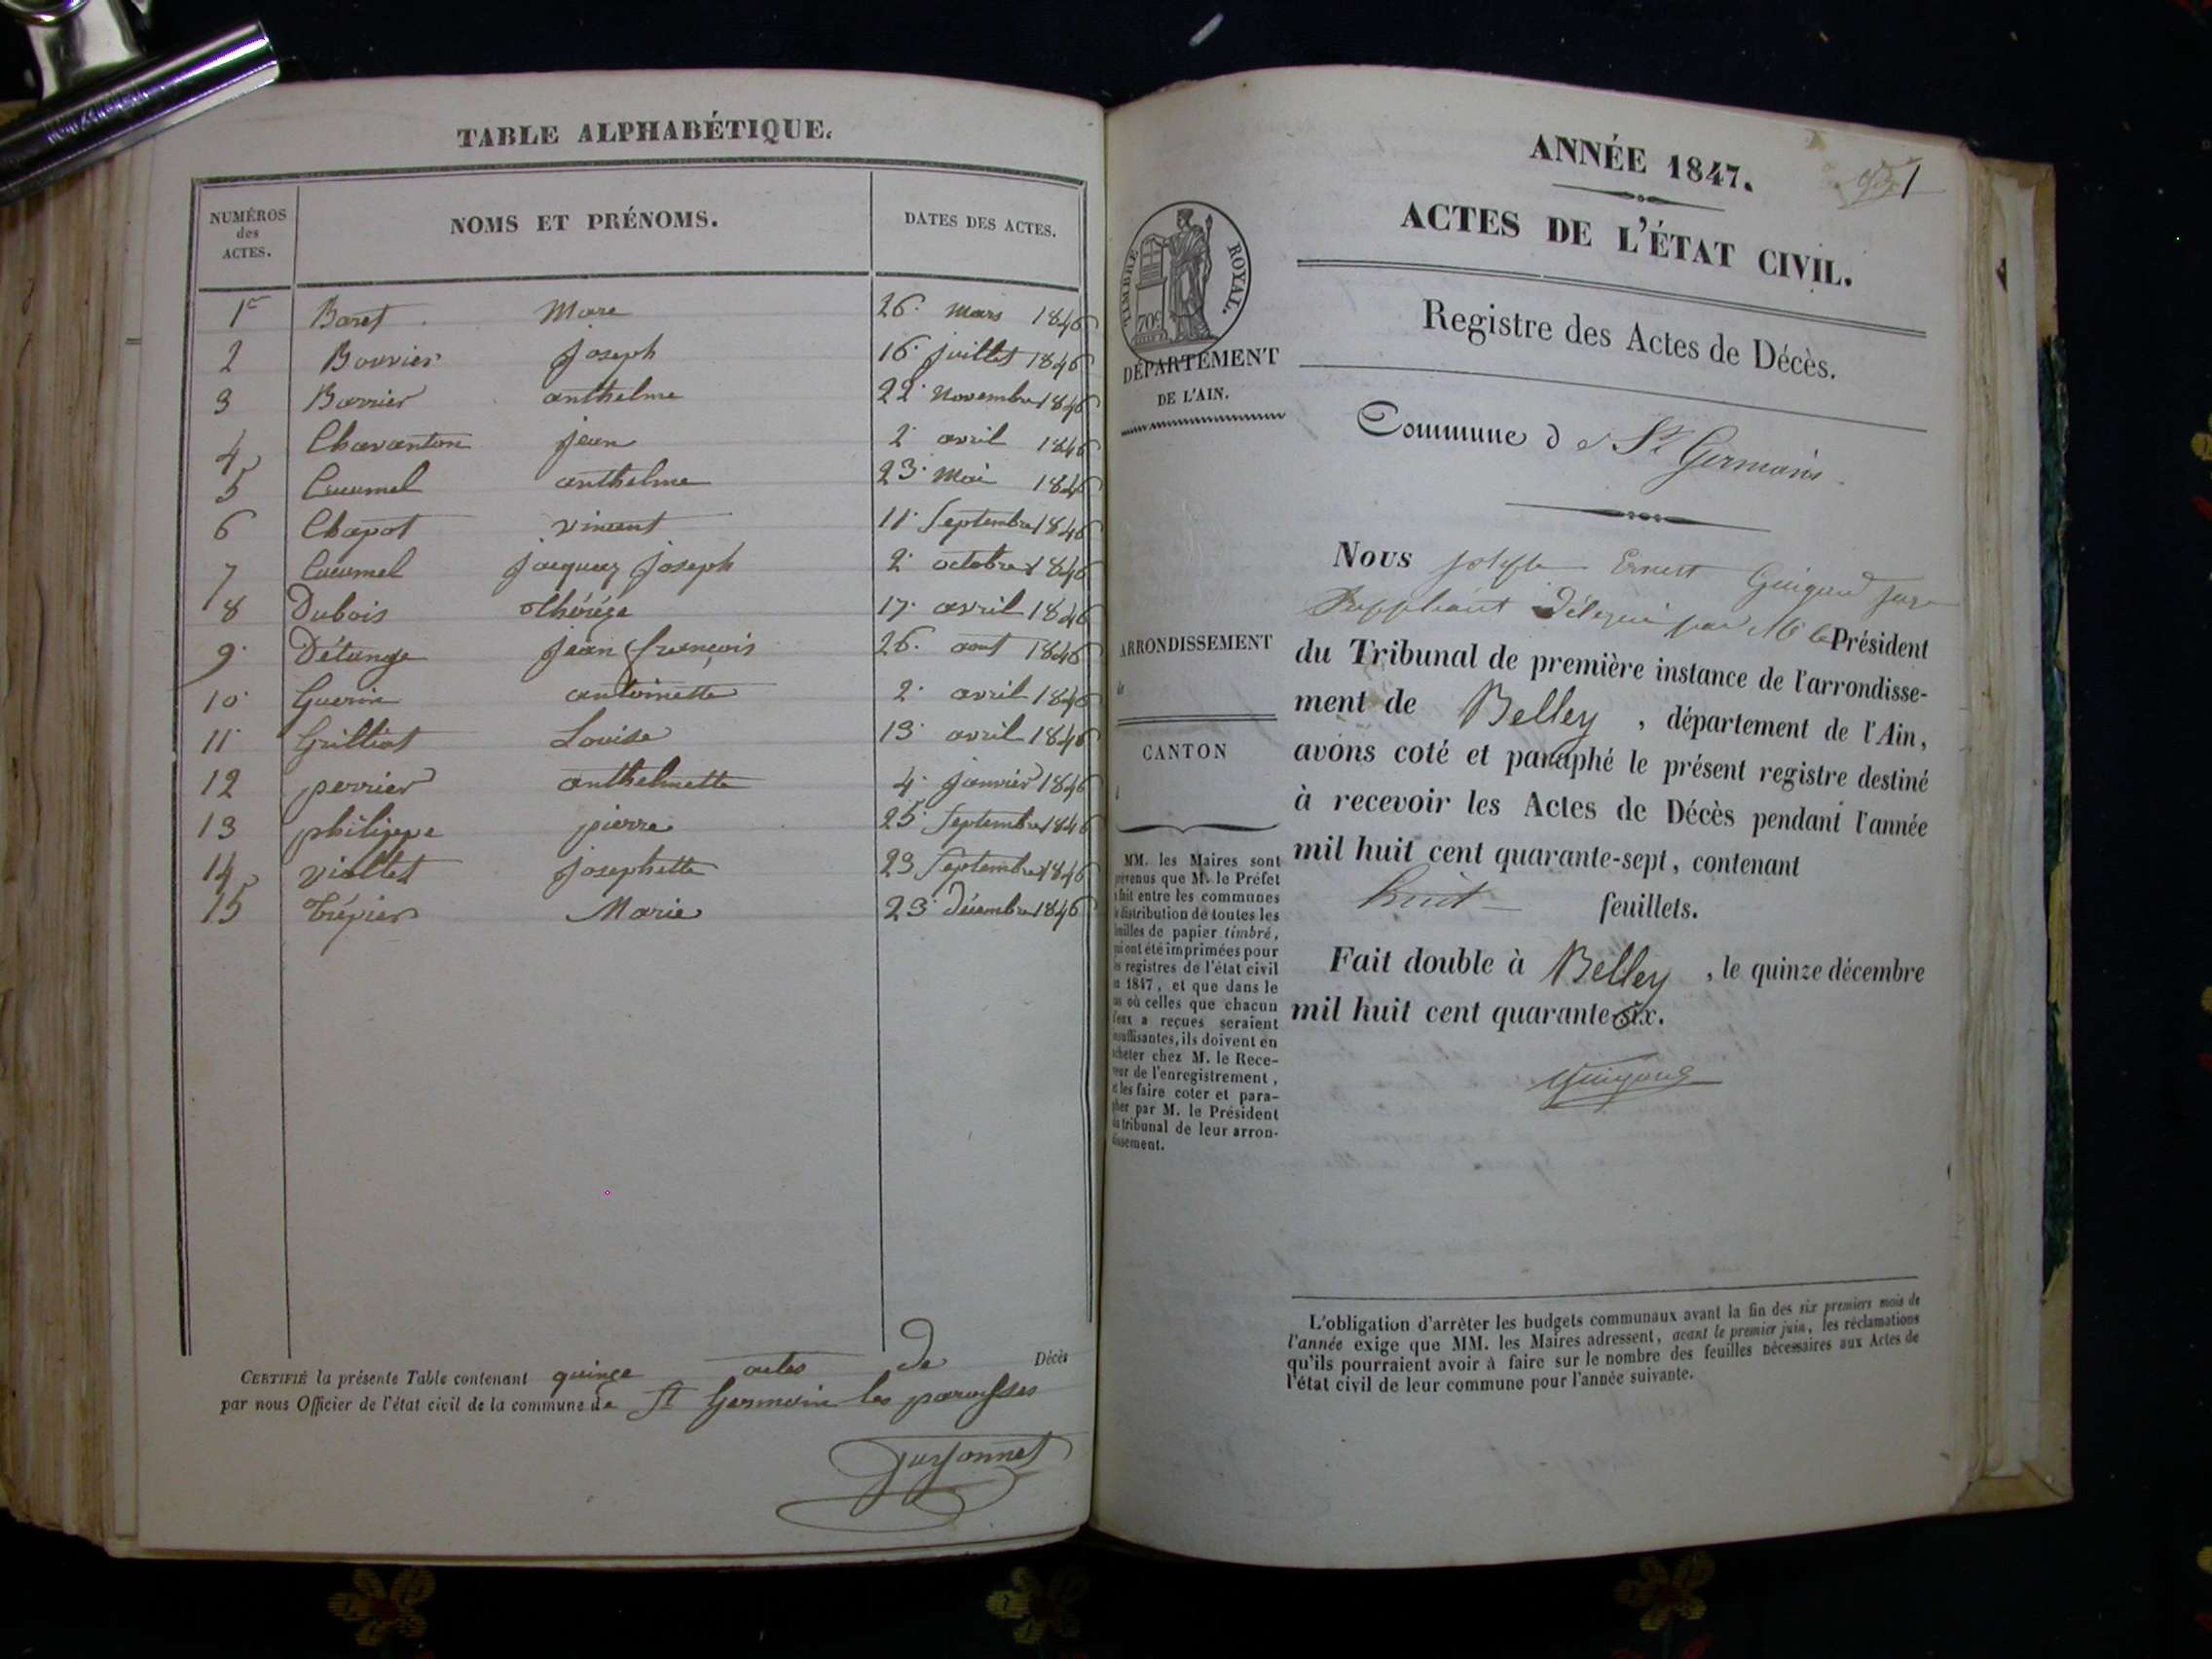 TABLE ALPHABÉTIQUE.
NUMÉROS des ACTES. NOMS ET PRÉNOMS. DATES DES ACTES.
1er Baret Marc 26. Mars 1846
2 Bouvier Joseph 16. juillet 1846
3 Barrier anthelme 22. Novembre 1846
4 Chavanton jean 2. avril 1846
5 Cucumel anthelme 23. Mai 1846
6 Chapot vincent 11. Septembre 1846
7 Cucumel Jacques Joseph 2. octobre 1846
8 Dubois Thérèze 17. avril 1846
9. Détange jean françois 26. aout 1846
10. Guerin antoinette 2. avril 1846
11. Grilliat Louise 13. avril 1846
12 perrier anthelmette 4. janvier 1846
13 philippe pierre 25. Septembre 1846
14 viollet Josephette 23 Septembre 1846
15 Trépier Marie 23. décembre 1846
CERTIFIÉ la présente Table contenant quinze actes de Décès
par nous Officier de l'état civil de la commune de St Germain les paroisses
1
ANNÉE 1847.
ACTES DE L'ÉTAT CIVIL.
TIMBRE ROYAL.
70c
DÉPARTEMENT
DE L'AIN.
Registre des Actes de Décès.
Commune de St Germain
Nous Joseph Ernest Guigard Juge
Suppléant Délégué par Mr le Président
du Tribunal de première instance de l'arrondisse-
ment de Belley, département de l'Ain,
avons coté et paraphé le présent registre destiné
à recevoir les Actes de Décès pendant l'année
mil huit cent quarante-sept, contenant
huit feuillets.
Fait double à Belley, le quinze décembre
mil huit cent quarante-six.
ARRONDISSEMENT
CANTON
MM. les Maires sont
prévenus que M. le Préfet
a fait entre les communes
la distribution de toutes les
feuilles de papier timbré,
qui ont été imprimées pour
les registres de l'état civil
en 1847, et que dans le
cas où celles que chacun
d'eux a reçues seraient
insuffisantes, ils doivent en
acheter chez M. le Rece-
veur de l'enregistrement,
et les faire coter et para-
pher par M. le Président
du tribunal de leur arron-
dissement.
L'obligation d'arrêter les budgets communaux avant la fin des six premiers mois de
l'année exige que MM. les Maires adressent, avant le premier juin, les réclamations
qu'ils pourraient avoir à faire sur le nombre des feuilles nécessaires aux Actes de
l'état civil de leur commune pour l'année suivante.